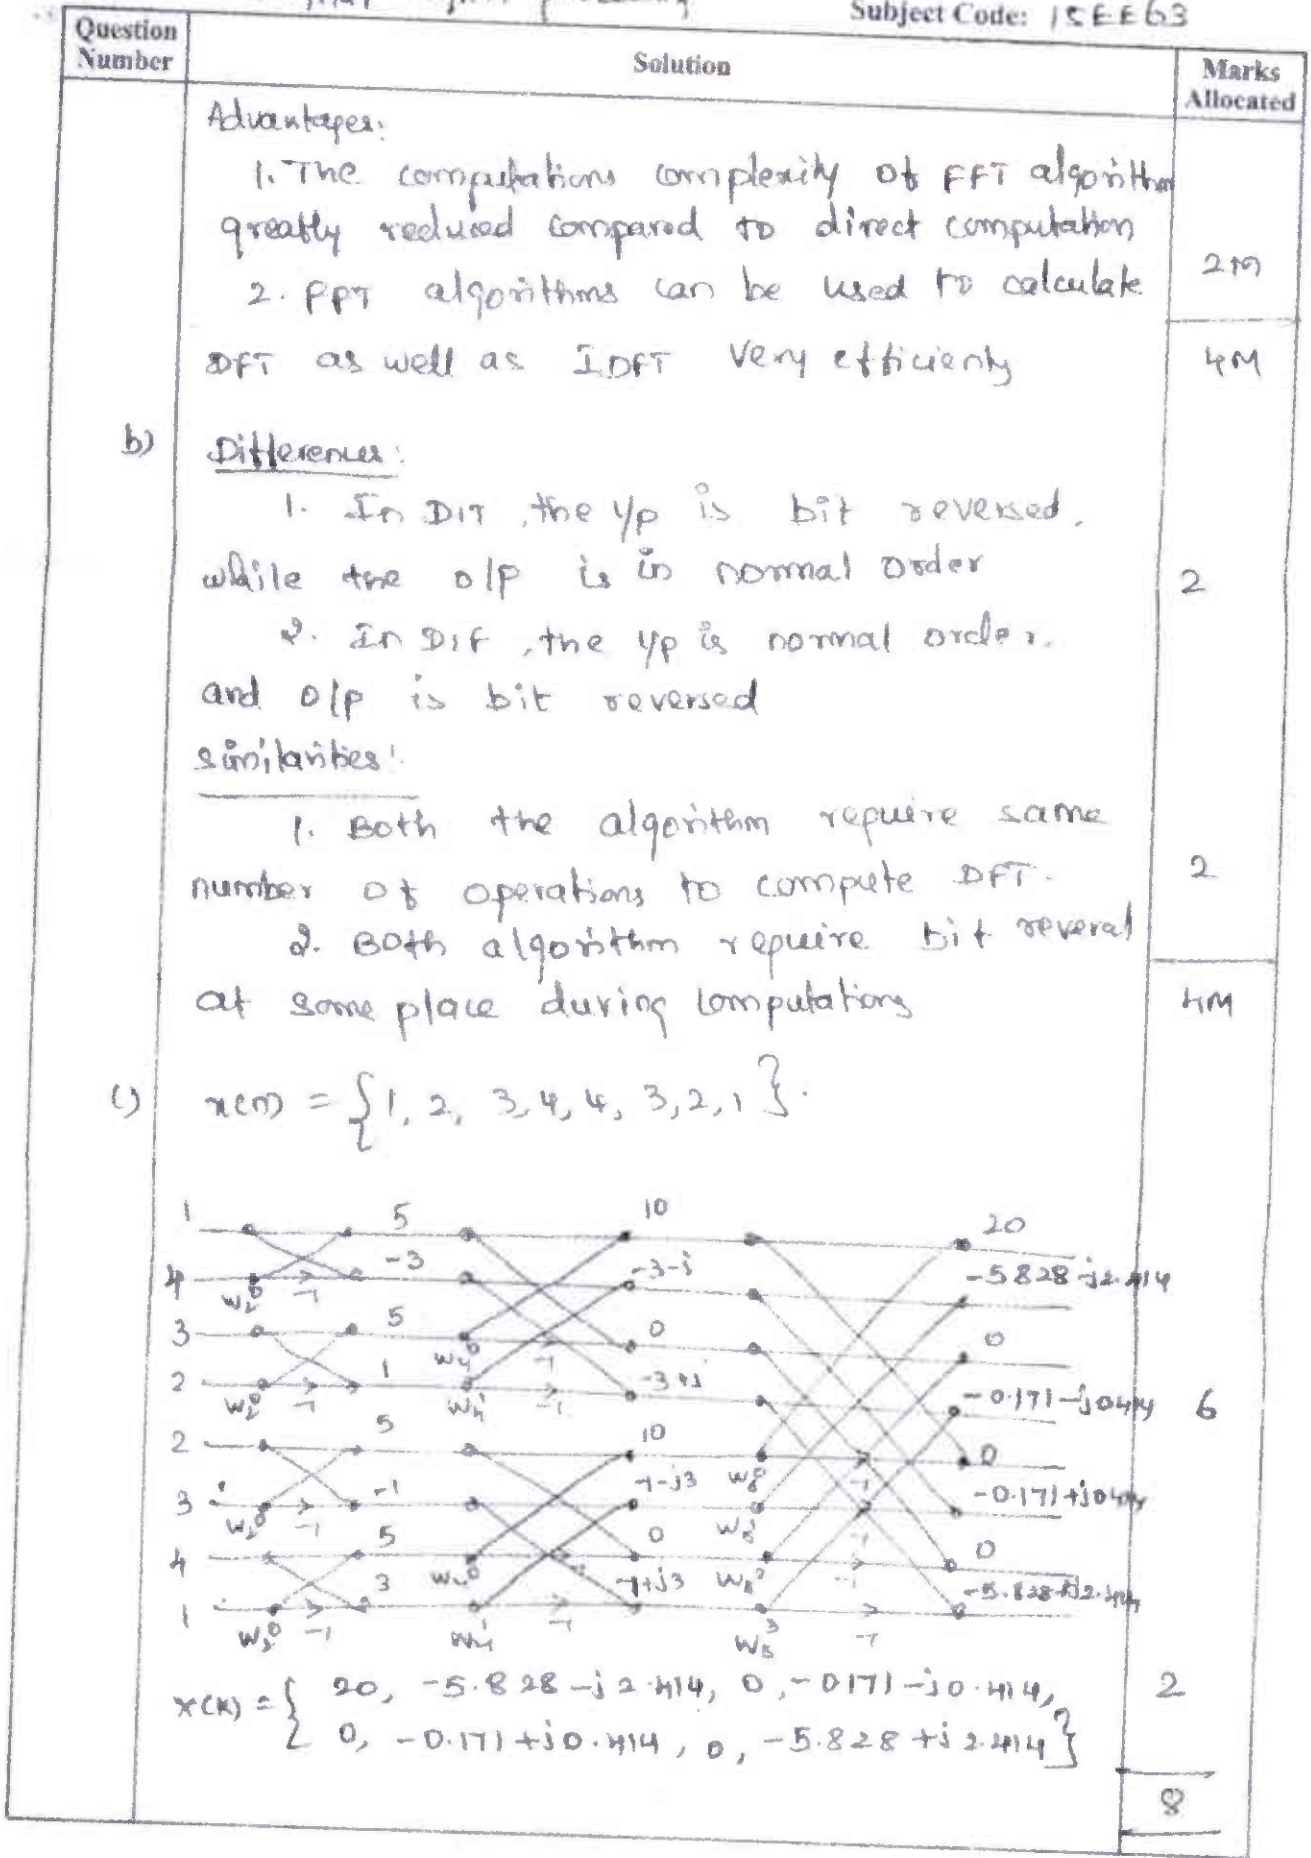 Subject Code: 15EE63
Question Number
Solution
Marks Allocated
Advantages:
1. The computations complexity of FFT algorithm
greatly reduced compared to direct computation
2M
2. FFT algorithms can be used to calculate
DFT as well as IDFT very efficienty
4M
b)
Differences:
1. In DIT, the i/p is bit reversed,
while the o/p is in normal order
2
2. In DIF, the i/p is normal order.
and o/p is bit reversed
similarities:
1. Both the algorithm require same
number of operations to compute DFT.
2
2. Both algorithm require bit reveral
at some place during computations
4M
c)
x(n) = {1, 2, 3, 4, 4, 3, 2, 1}.
1 5 10 20
4 W₂⁰ -1 -3 -3-j -5.828-j2.414
3 5 W₄⁰ 0 -1 0
2 W₂⁰ -1 1 W₄¹ -1 -3+j -0.171-j0.414
6
2 5 10 W₈⁰ -1 0
3 W₂⁰ -1 -1 -1-j3 W₈¹ -0.171+j0.414
4 5 W₄⁰ -1 0 W₈² -1 0
1 W₂⁰ -1 3 W₄¹ -1 -1+j3 W₈³ -1 -5.828+j2.414
X(K) = { 20, -5.828-j2.414, 0, -0.171-j0.414,
0, -0.171+j0.414, 0, -5.828+j2.414}
2
8